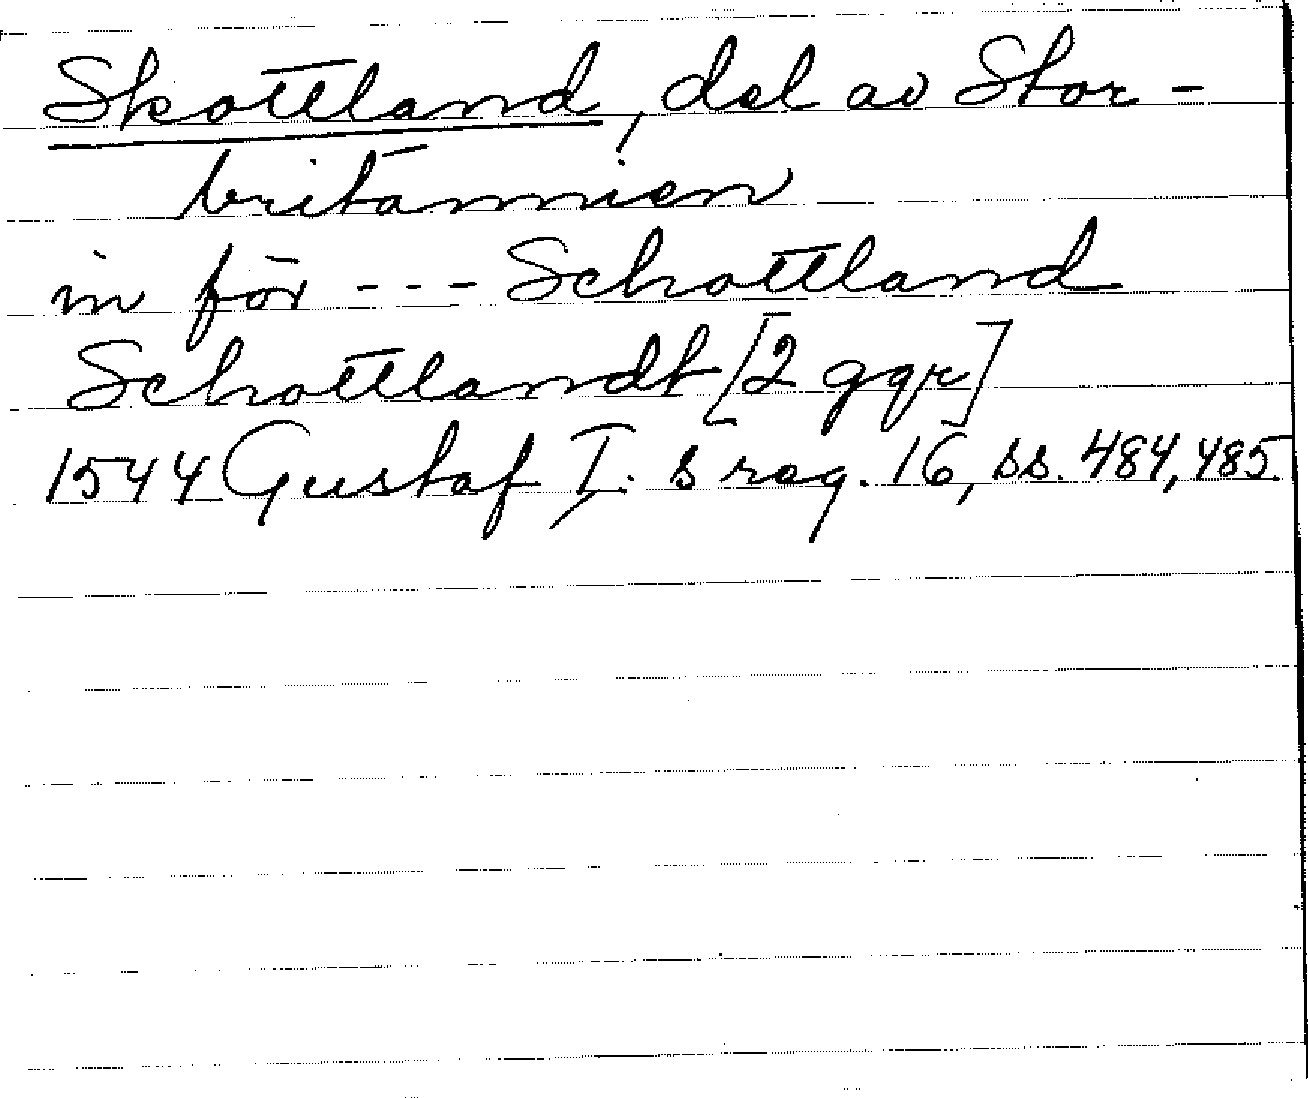 Skottland, del av Stor-
britannien
in för --- Schottland
Schottlandt [2 ggr]
1544 Gustaf I:s reg. 16, ss. 484, 485.